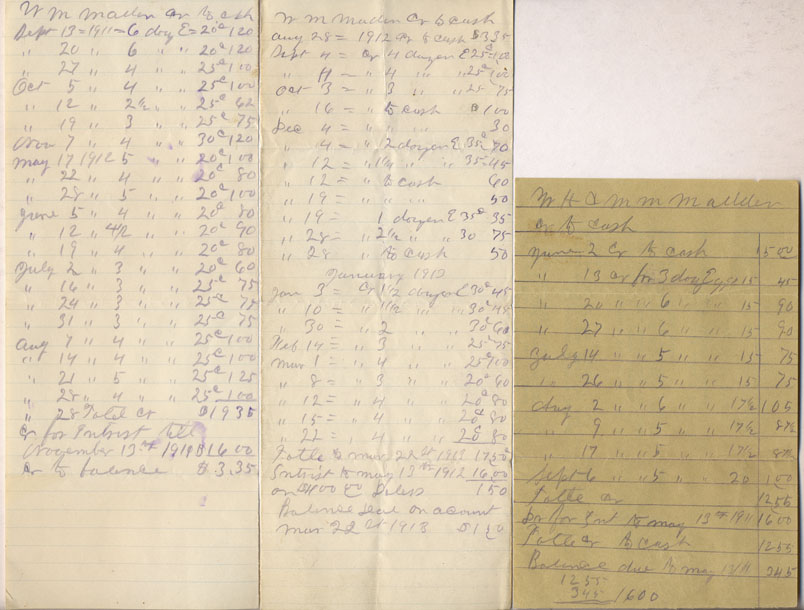 W M Madden Cr to cash
Sept 13 = 1911 = 6 doz E = 20c 120
" 20 " 6 " " 20c 120
" 27 " 4 " " 25c 100
Oct 5 " 4 " " 25c 100
" 12 " 2½ " " 25c 62
" 19 " 3 " " 25c 75
Nov 7 " 4 " " 30c 120
May 17 1912 5 " " 20c 100
" 22 " 4 " " 20c 80
" 28 " 5 " " 20c 100
June 5 " 4 " " 20c 80
" 12 " 4½ " " 20c 90
" 19 " 4 " " 20c 80
July 2 " 3 " " 20c 60
" 16 " 3 " " 25c 75
" 24 " 3 " " 25c 75
" 31 " 3 " " 25c 75
Aug 7 " 4 " " 25c 100
" 14 " 4 " " 25c 100
" 21 " 5 " " 25c 125
" 28 " 4 " " 25c 100
" 28 Total Cr $1935
Cr for Intrist till
November 13th $1600
Cr to balance $3.35
W M Madden Cr to cash
Aug 28 = 1912 Cr to cash $335
Sept 4 = Cr 4 dozen E 25c 100
" 11 = " 4 " " 25c 100
Oct 3 = " 3 " " 25c 75
" 16 = " to cash $100
Dec 4 = " " " 30
" 4 = " 2 dozen E 35c 70
" 12 = " 1¼ " " 35 45
" 12 = " to cash 60
" 19 = " " 50
" 19 = 1 dozen E 35c 35
" 28 = " 2½ " " 30 75
" 28 " to cash 50
January 1913
Jan 3 = Cr 1½ dozen E 30c 45
" 10 = " 1½ " " 30c 45
" 30 = " 2 " " 30c 60
Feb 14 = " 3 " " 25c 75
Mar 1 = " 4 " " 25c 100
" 8 = " 3 " " 20c 60
" 12 = " 4 " " 20c 80
" 15 = " 4 " " 20c 80
" 22 = " 4 " " 20c 80
Totle to mar 22st 1913 1750
Intrist to may 13th 1912 1600
on $400 00 150
Balance on account
Mar 22st 1913 $150
W H & M M Madden
Cr to cash
June 2 Cr to cash 5 00
" 13 Cr for 3 doz Eggs 15 45
" 20 " " 6 " " 15 90
" 27 " " 6 " " 15 90
July 14 " " 5 " " 15 75
" 26 " " 5 " " 15 75
Aug 2 " " 6 " " 17½ 105
" 9 " " 5 " " 17½ 87½
" 17 " " 5 " " 17½ 87½
Sept 6 " " 5 " " 20 100
Totle Cr 1255
Dr for Int to may 13th 1911 1600
Totle Cr to cash 1255
Balance due to may 1911 345
1255
345 1600